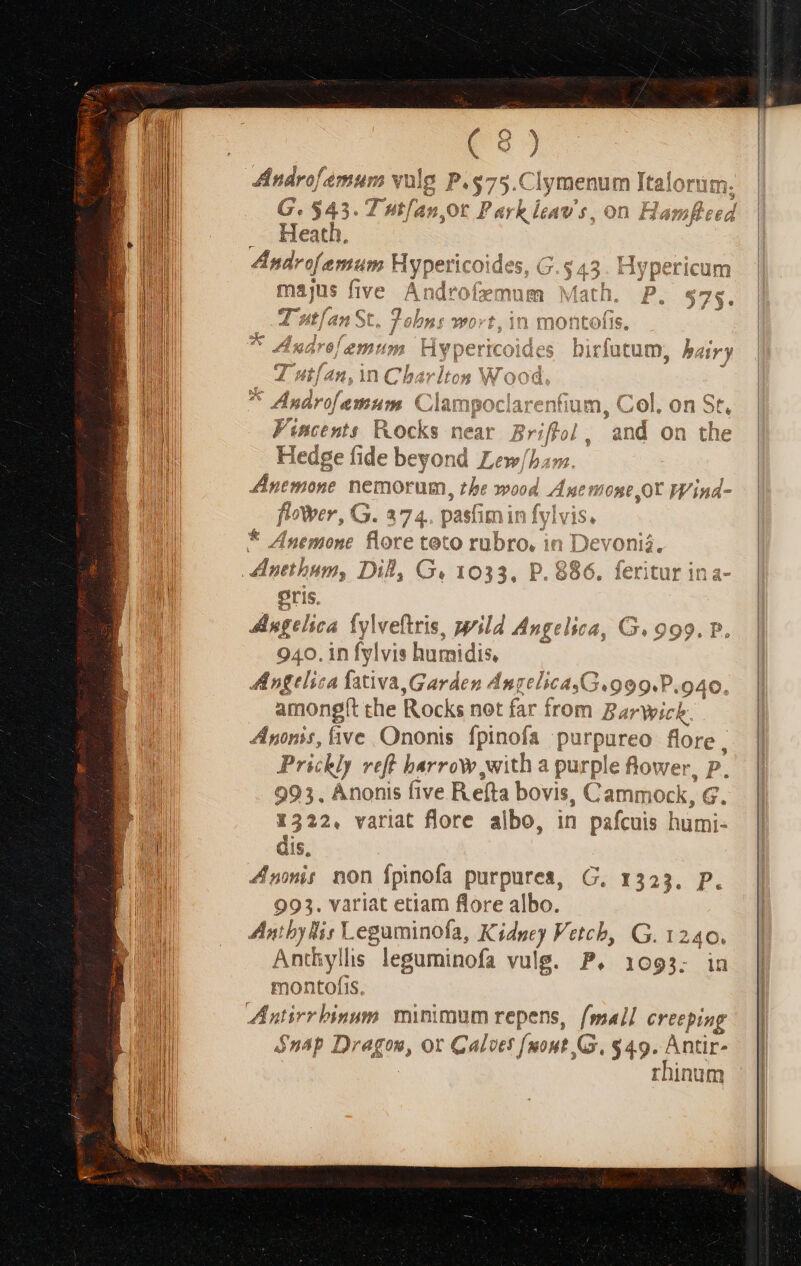 ( 8 )
Androſæmum vulg P.575.Clymenum Italorum,
G. 543. Tutſan,or Park leav's, on Hamſteed
Heath.
Androſæmum Hypericoides, G.543. Hypericum
majus ſive Androſæmum Math. P. 575.
Tutſan St. Johns wort, in montoſis.
* Androſæmum Hypericoides hirſutum, hairy
Tutſan, in Charlton Wood.
* Androſæmum Clampoclarenſium, Col. on St,
Vincents Rocks near Briſtol, and on the
Hedge ſide beyond Lewſham.
Anemone nemorum, the wood Anemone,or Wind-
flower, G. 374. pasſim in ſylvis.
* Anemone flore toto rubro. in Devoniâ.
Anethum, Dill, G. 1033. P. 886. ſeritur in a-
gris.
Angelica ſylveſtris, wild Angelica, G. 999. P.
940. in ſylvis humidis.
Angelica ſativa,Garden Angelica,G.999.P.940.
amongſt the Rocks not far from Barwick.
Anonis, ſive Ononis ſpinoſa purpureo flore,
Prickly reſt harrow,with a purple flower, P.
993. Anonis ſive Reſta bovis, Cammock, G.
1322. variat flore albo, in paſcuis humi-
dis.
Anonis non ſpinoſa purpurea, G. 1323. P.
993. variat etiam flore albo.
Anthyllis Leguminoſa, Kidney Vetch, G. 1240.
Anthyllis leguminoſa vulg. P. 1093. in
montoſis.
Antirrhinum minimum repens, ſmall creeping
Snap Dragon, or Calves ſnout,G. 549. Antir-
rhinum